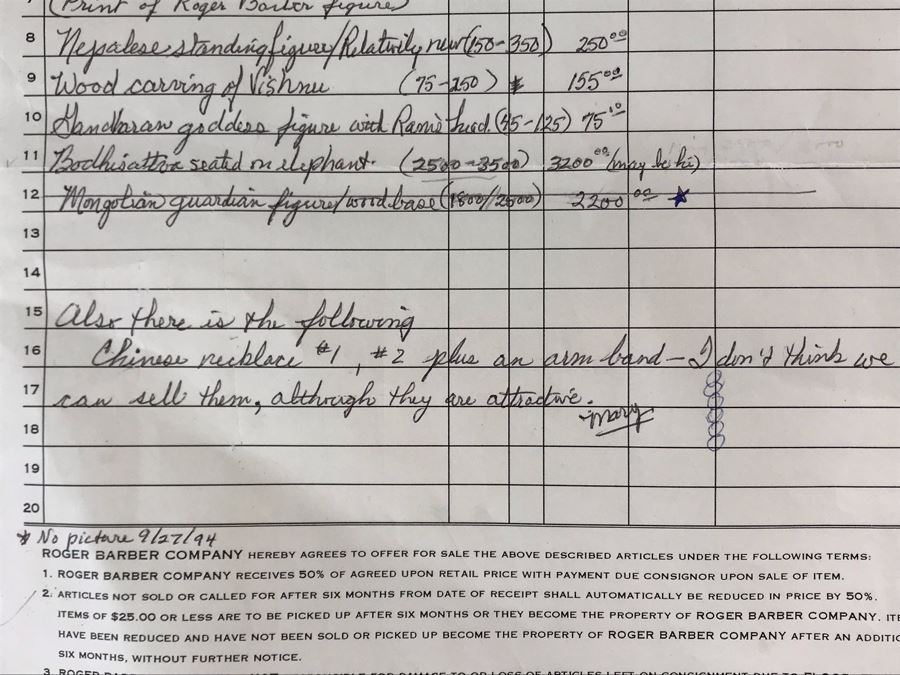 (Print of Roger Barber figure)
8 Nepalese standing figure/Relativily new (150-350) 250.00
9 Wood carving of Vishnu (75-250) * 155.00
10 Gandharan goddess figure with Rams head (45-125) 75
11 Bodhisattva seated on elephant. (2500-3500) 3200.00 (may be hi)
12 Mongolian guardian figure/wood base (1800/2500) 2200.00 *
13
14
15 Also there is the following
16 Chinese necklace #1, #2 plus an arm band - I don't think we
17 can sell them, although they are attractive.
18 Mary
19
20
* No picture 9/27/94
ROGER BARBER COMPANY HEREBY AGREES TO OFFER FOR SALE THE ABOVE DESCRIBED ARTICLES UNDER THE FOLLOWING TERMS:
1. ROGER BARBER COMPANY RECEIVES 50% OF AGREED UPON RETAIL PRICE WITH PAYMENT DUE CONSIGNOR UPON SALE OF ITEM.
2. ARTICLES NOT SOLD OR CALLED FOR AFTER SIX MONTHS FROM DATE OF RECEIPT SHALL AUTOMATICALLY BE REDUCED IN PRICE BY 50%.
ITEMS OF $25.00 OR LESS ARE TO BE PICKED UP AFTER SIX MONTHS OR THEY BECOME THE PROPERTY OF ROGER BARBER COMPANY. ITE
HAVE BEEN REDUCED AND HAVE NOT BEEN SOLD OR PICKED UP BECOME THE PROPERTY OF ROGER BARBER COMPANY AFTER AN ADDITIO
SIX MONTHS, WITHOUT FURTHER NOTICE.